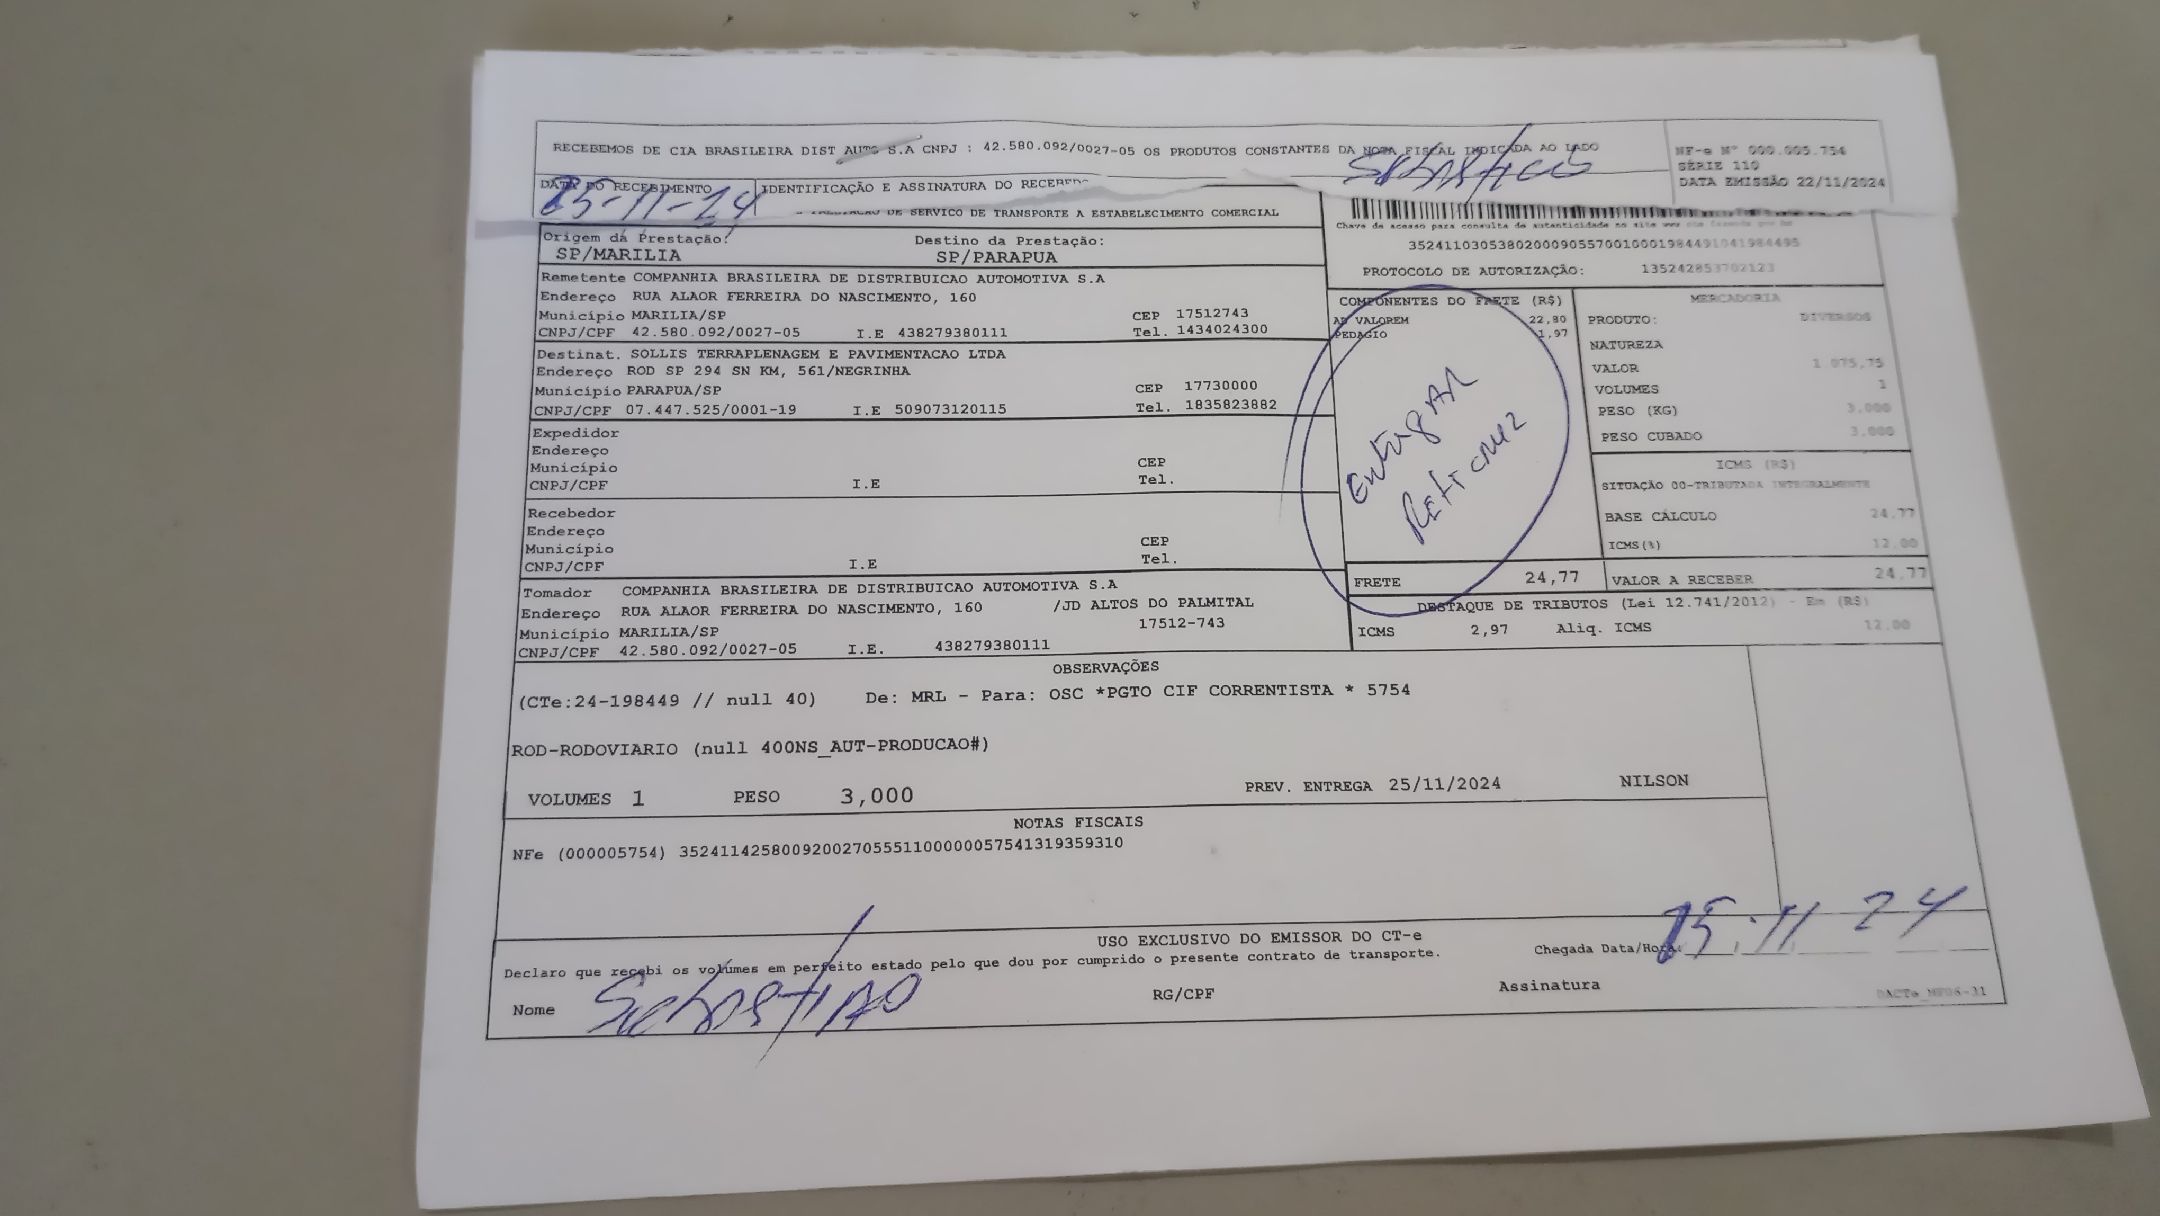 RECEBEMOS DE CIA BRASILEIRA DIST AUTO S.A CNPJ : 42.580.092/0027-05 OS PRODUTOS CONSTANTES DA NOTA FISCAL INDICADA AO LADO
NF-e Nº 000.005.754
SÉRIE 110
DATA EMISSÃO 22/11/2024
DATA DO RECEBIMENTO
IDENTIFICAÇÃO E ASSINATURA DO RECEBED
25-11-24
Sebastião
DE SERVICO DE TRANSPORTE A ESTABELECIMENTO COMERCIAL
Chave de acesso para consulta de autenticidade no site www
Origem da Prestação:
SP/MARILIA
Destino da Prestação:
SP/PARAPUA
35241103053802000905570010001984491041984495
PROTOCOLO DE AUTORIZAÇÃO: 135242853702123
Remetente COMPANHIA BRASILEIRA DE DISTRIBUICAO AUTOMOTIVA S.A
Endereço RUA ALAOR FERREIRA DO NASCIMENTO, 160
Município MARILIA/SP CEP 17512743
CNPJ/CPF 42.580.092/0027-05 I.E 438279380111 Tel. 1434024300
Destinat. SOLLIS TERRAPLENAGEM E PAVIMENTACAO LTDA
Endereço ROD SP 294 SN KM, 561/NEGRINHA
Município PARAPUA/SP CEP 17730000
CNPJ/CPF 07.447.525/0001-19 I.E 509073120115 Tel. 1835823882
Expedidor
Endereço
Município CEP
CNPJ/CPF I.E Tel.
Recebedor
Endereço
Município CEP
CNPJ/CPF I.E Tel.
Tomador COMPANHIA BRASILEIRA DE DISTRIBUICAO AUTOMOTIVA S.A
Endereço RUA ALAOR FERREIRA DO NASCIMENTO, 160 /JD ALTOS DO PALMITAL
Município MARILIA/SP 17512-743
CNPJ/CPF 42.580.092/0027-05 I.E. 438279380111
COMPONENTES DO FRETE (R$)
AD VALOREM 22,80
PEDAGIO 1,97
Entregar
Reticruz
MERCADORIA
PRODUTO: DIVERSOS
NATUREZA
VALOR 1.075,75
VOLUMES 1
PESO (KG) 3.000
PESO CUBADO 3.000
ICMS (R$)
SITUAÇÃO 00-TRIBUTADA INTEGRALMENTE
BASE CÁLCULO 24,77
ICMS(%) 12.00
FRETE 24,77
VALOR A RECEBER 24,77
DESTAQUE DE TRIBUTOS (Lei 12.741/2012) - Em (R$)
ICMS 2,97 Aliq. ICMS 12.00
OBSERVAÇÕES
(CTe:24-198449 // null 40) De: MRL - Para: OSC *PGTO CIF CORRENTISTA * 5754
ROD-RODOVIARIO (null 400NS_AUT-PRODUCAO#)
VOLUMES 1 PESO 3,000 PREV. ENTREGA 25/11/2024 NILSON
NOTAS FISCAIS
NFe (000005754) 35241142580092002705551100000057541319359310
USO EXCLUSIVO DO EMISSOR DO CT-e
Declaro que recebi os volumes em perfeito estado pelo que dou por cumprido o presente contrato de transporte.
Chegada Data/Hora: 25.11 24
Nome Sebastião RG/CPF Assinatura
DACTe_MF06-31